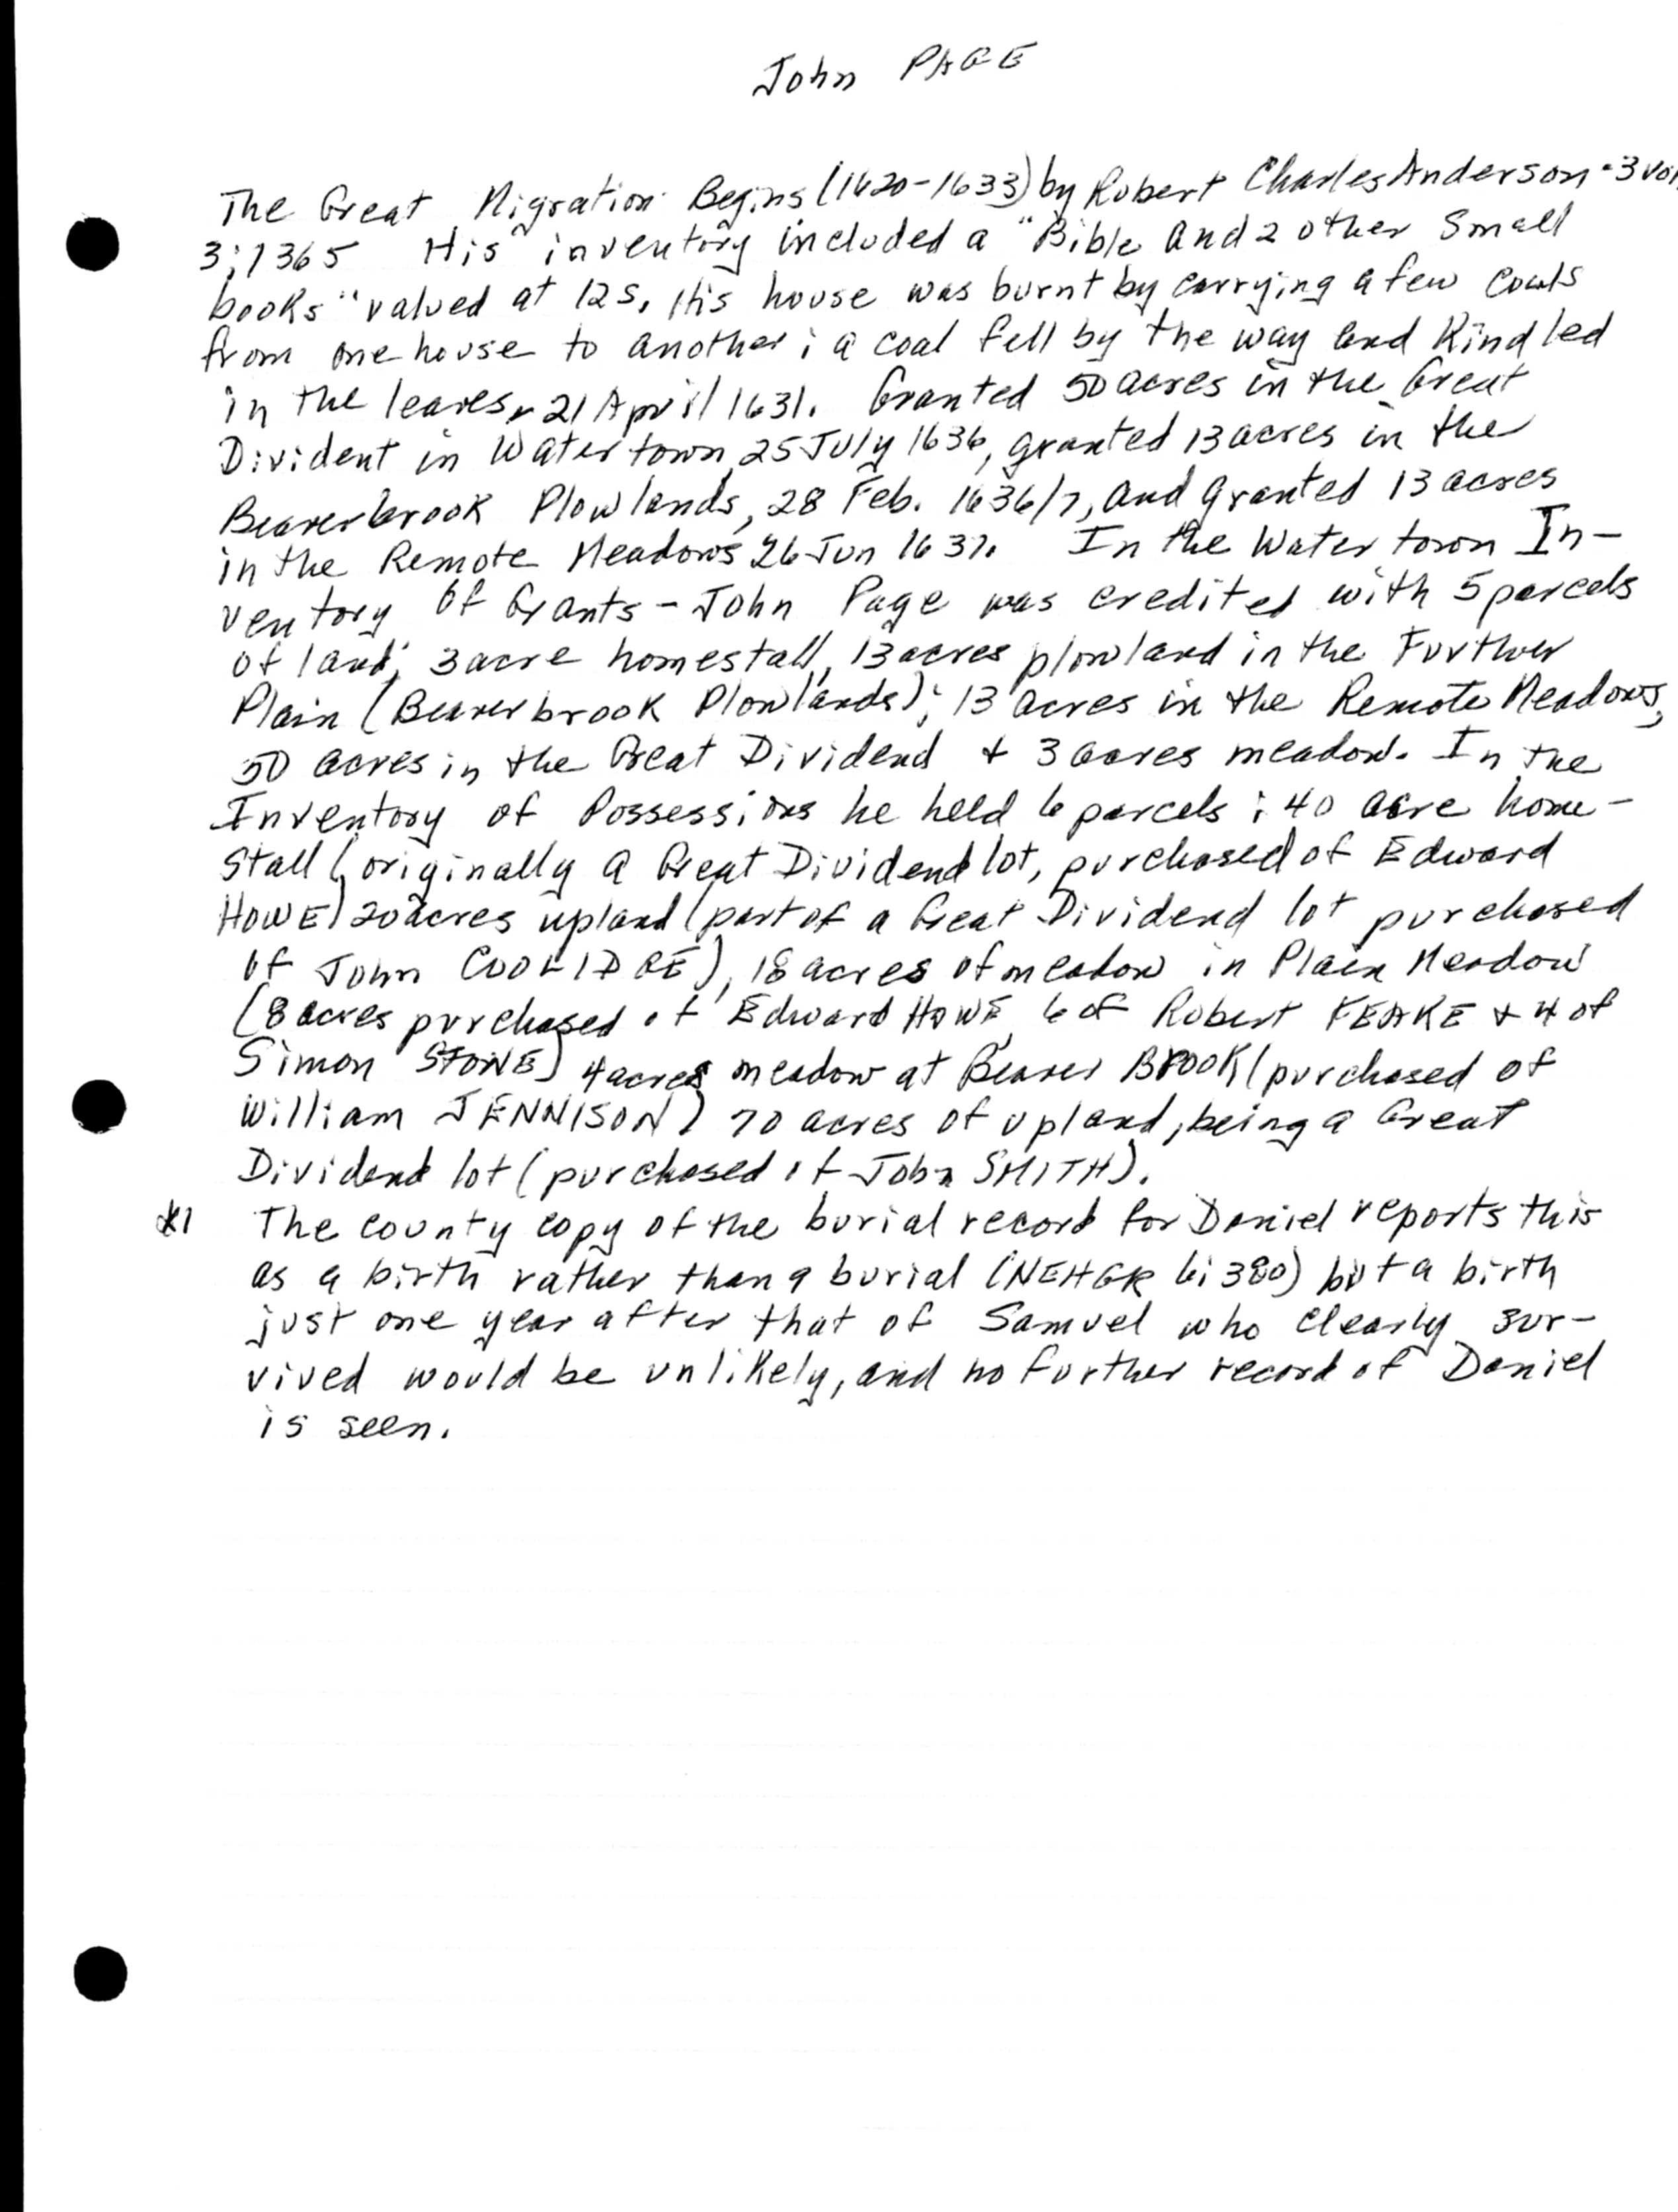 John PAGE
The Great Migration Begins (1620-1633) by Robert Charles Anderson - 3 vol
3:1365 His inventory included a "Bible and 2 other Small
books" valued at 12s. His house was burnt by carrying a few coals
from one house to another; a coal fell by the way and Kindled
in the leaves, 21 April 1631. Granted 50 acres in the Great
Divident in Watertown 25 July 1636, granted 13 acres in the
Beaverbrook Plowlands, 28 Feb. 1636/7, and granted 13 acres
in the Remote Meadows 26 Jun 1637. In the Watertown In-
ventory Of Grants - John Page was credited with 5 parcels
of land; 3 acre homestall, 13 acres plowland in the Further
Plain (Beaverbrook Plowlands); 13 acres in the Remote Meadows,
50 acres in the Great Dividend + 3 acres meadow. In the
Inventory of Possessions he held 6 parcels: 40 acre home-
stall (originally a Great Dividend lot, purchased of Edward
HOWE) 20 acres upland (part of a Great Dividend lot purchased
of John COOLIDGE), 18 acres of meadow in Plain Meadow
(8 acres purchased of Edward HOWE, 6 of Robert FEAKE + 4 of
Simon STONE) 4 acres meadow at Beaver BROOK (purchased of
William JENNISON) 70 acres of upland, being a Great
Dividend lot (purchased of John SMITH).
*1 The county copy of the burial record for Daniel reports this
as a birth rather than a burial (NEHGR 6:380) but a birth
just one year after that of Samuel who clearly sur-
vived would be unlikely, and no further record of Daniel
is seen.